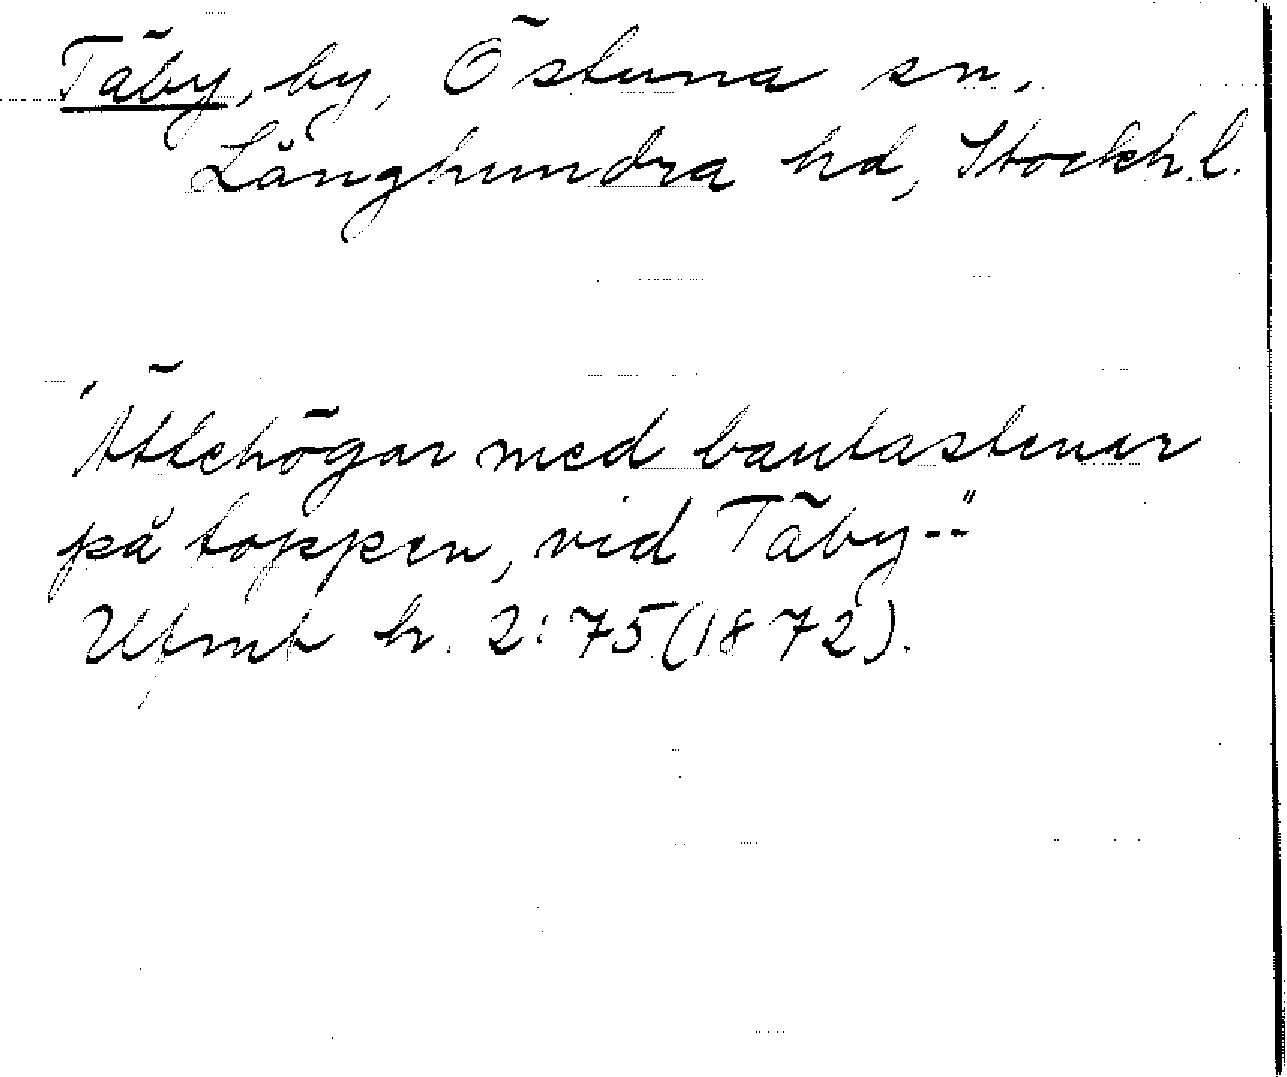 Täby, by, Östuna sn,
Långhundra hd, Stockh.l.
"Ättehögar med bautastenar
på toppen, vid Täby--"
Ufmt h. 2:75 (1872).